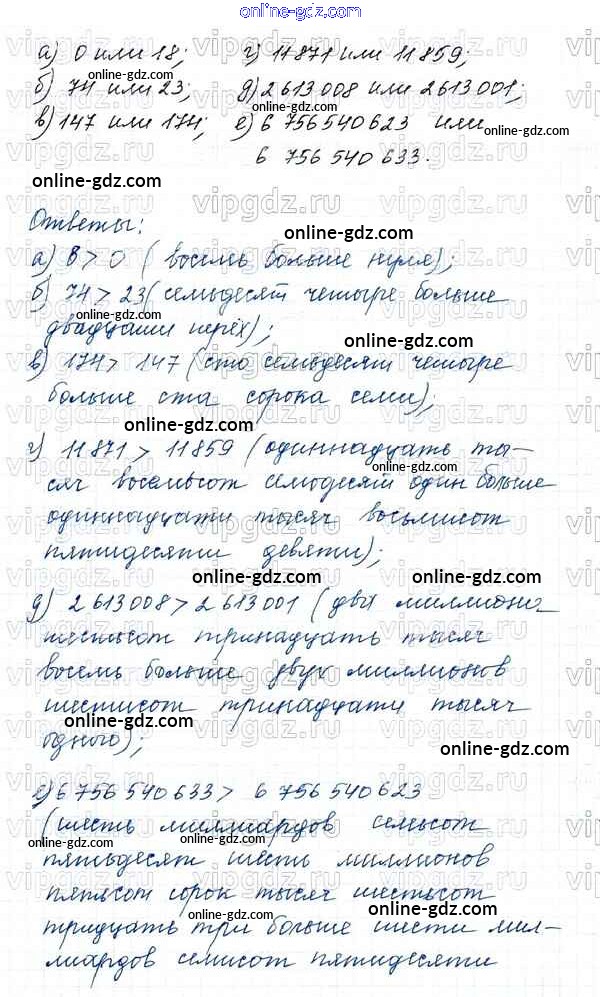 online-gdz.com
а) 0 или 18; г) 11871 или 11859;
б) 74 или 23; д) 2613008 или 2613001;
в) 147 или 174; е) 6 756540623 или
6 756 540 633.
Ответы:
а) 8 > 0 ( восемь больше нуля);
б) 74 > 23 (семьдесят четыре больше
двадцати нерёх);
в) 174 > 147 (сто семьдесят четыре
больше ста сорока семи);
г) 11871 > 11859 (одиннадцать ты-
сяч восемьсот семьдесят один больше
одиннадцати тысяч восьмисот
пятидесяти девяти);
д) 2613008 > 2613001 (два миллиона
шестьсот тринадцать тысяч
восемь больше двух миллионов
шестисот тринадцати тысяч
одного);
е) 6 756 540 633 > 6 756 540 623
(шесть миллиардов семьсот
пятьдесят шесть миллионов
пятьсот сорок тысяч шестьсот
тридцать три больше шести мил-
лиардов семисот пятидесяти